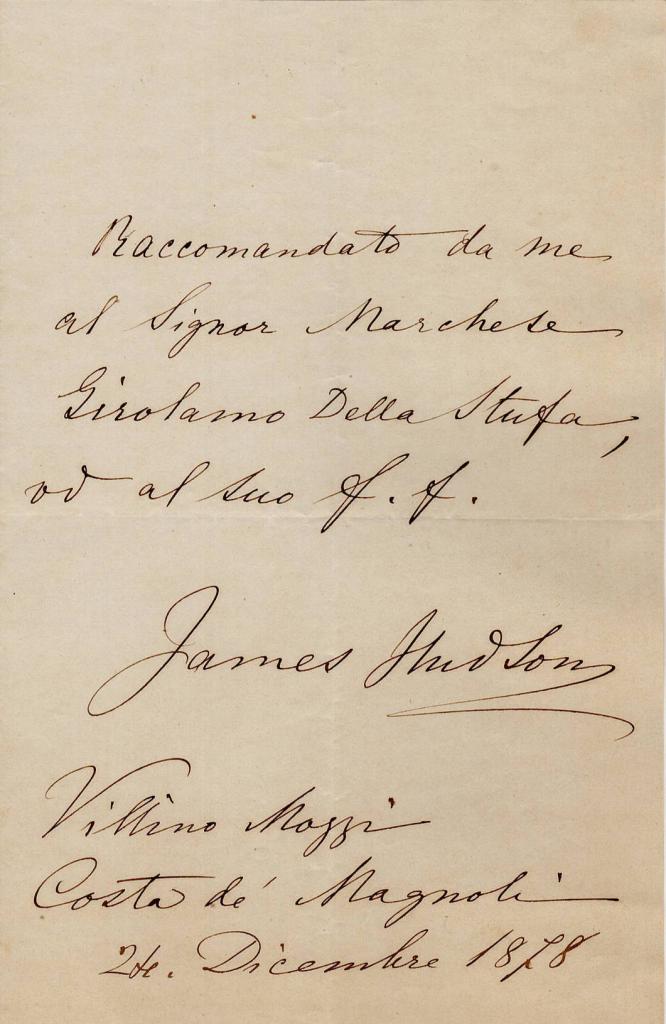 Raccomandato da me
al Signor Marchese
Girolamo Della Stufa,
od al suo f. f.
James Hudson
Villino Mozzi
Costa de' Magnoli
24. Dicembre 1878